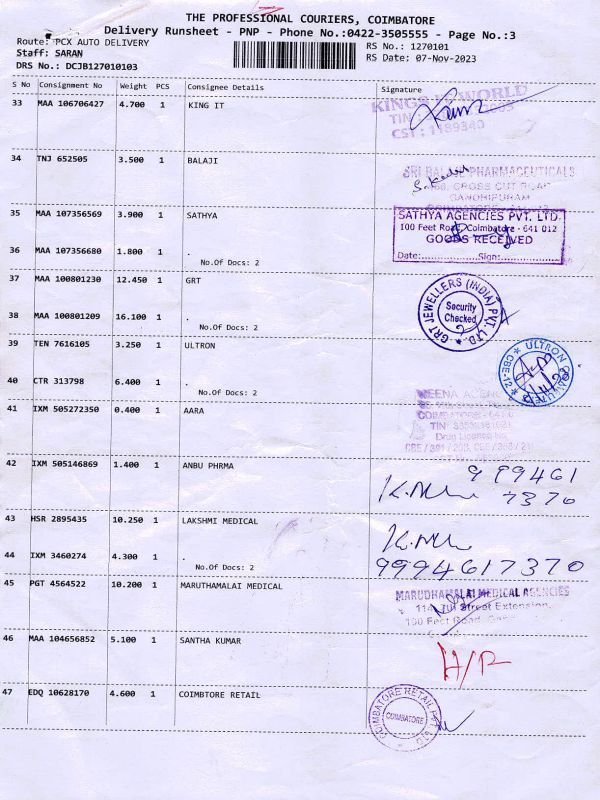 THE PROFESSIONAL COURIERS, COIMBATORE
Delivery Runsheet - PNP - Phone No.:0422-3505555 - Page No.:3
Route: PCX AUTO DELIVERY
RS No.: 1270101
Staff: SARAN
RS Date: 07-Nov-2023
DRS No.: DCJB127010103
S No Consignment No Weight PCS Consignee Details Signature
33 MAA 106706427 4.700 1 KING IT
KINGS IT WORLD
TIN
CST : 1189340
34 TNJ 652505 3.500 1 BALAJI
SRI BALAJI PHARMACEUTICALS
CROSS CUT ROAD
GANDHIPURAM
35 MAA 107356569 3.900 1 SATHYA
SATHYA AGENCIES PVT. LTD.
100 Feet Road, Coimbatore - 641 012
GOODS RECEIVED
Date:................Sign:................
36 MAA 107356680 1.800 1 .
No.Of Docs: 2
37 MAA 100801230 12.450 1 GRT
GRT JEWELLERS (INDIA) PVT. LTD.
Security
Checked
38 MAA 100801209 16.100 1 .
No.Of Docs: 2
39 TEN 7616105 3.250 1 ULTRON
ULTRON
CBE-12
40 CTR 313798 6.400 1 .
No.Of Docs: 2
41 IXM 505272350 0.400 1 AARA
MEENA AGENC
COIMBATORE
TIN
Drug Licence No.
42 IXM 505146869 1.400 1 ANBU PHRMA
999461
7370
43 HSR 2895435 10.250 1 LAKSHMI MEDICAL
44 IXM 3460274 4.300 1 .
No.Of Docs: 2
9994617370
45 PGT 4564522 10.200 1 MARUTHAMALAI MEDICAL
MARUDHAMALAI MEDICAL AGENCIES
114, 7th Street Extension,
100 Feet Road,
46 MAA 104656852 5.100 1 SANTHA KUMAR
H/R
47 EDQ 10628170 4.600 1 COIMBTORE RETAIL
COIMBATORE RETAIL PVT LTD
COIMBATORE